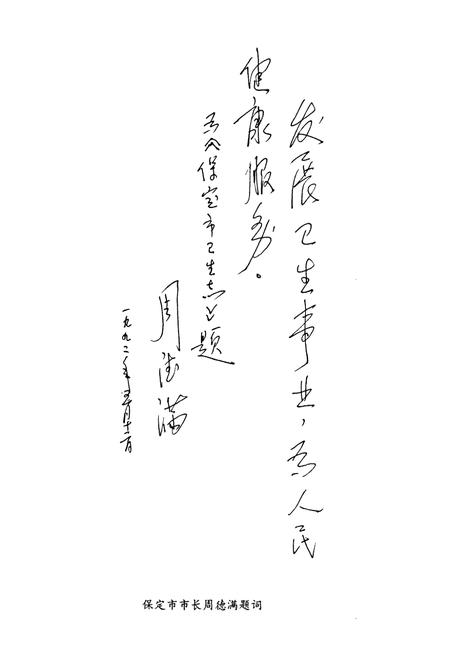 发展卫生事业，为人民
健康服务。
为《保定市卫生志》题
周德满
一九九二年五月十二日
保定市市长周德满题词